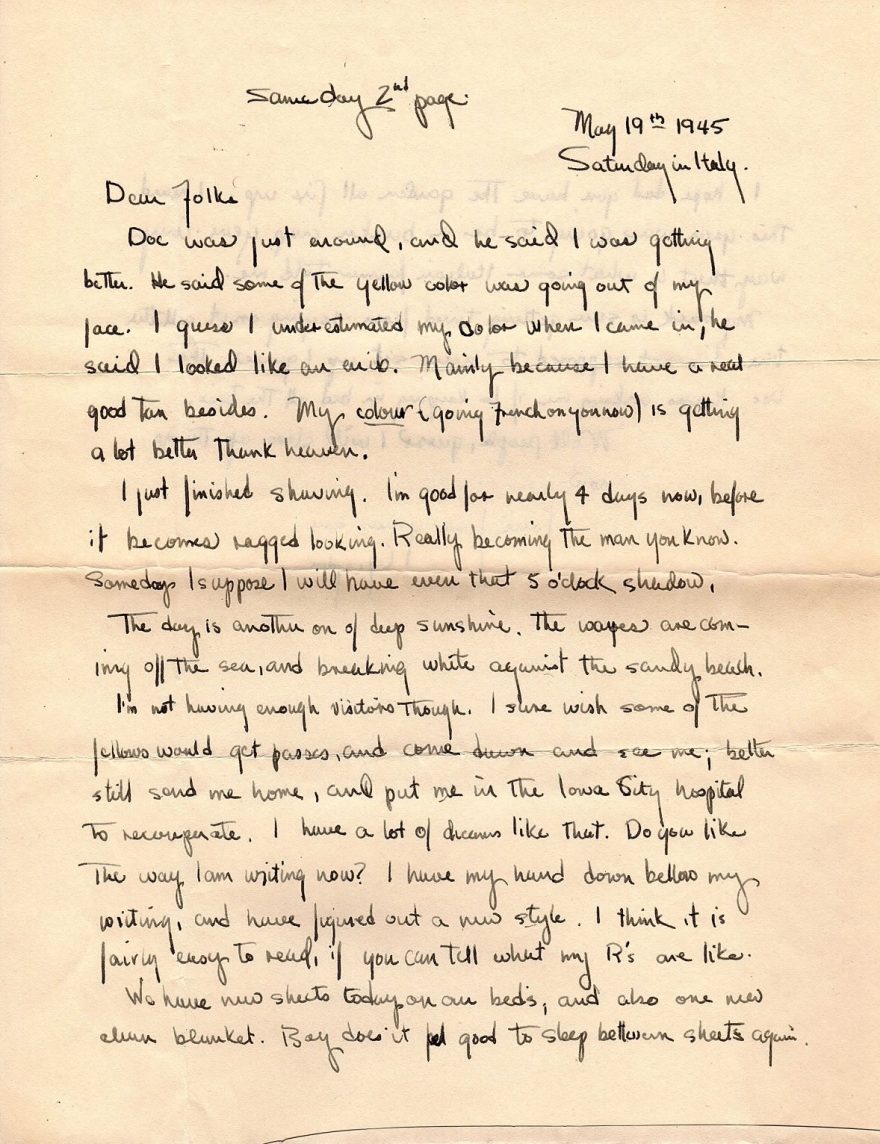 Same day 2nd page.
May 19th 1945
Saturday in Italy.
Dear Folks
Doc was just around, and he said I was getting
better. He said some of the yellow color was going out of my
face. I guess I underestimated my color when I came in, he
said I looked like an arib. Mainly because I have a real
good tan besides. My colour (going French on you now) is getting
a lot better thank heaven.
I just finished shaving. I'm good for nearly 4 days now, before
it becomes ragged looking. Really becoming the man you know.
Someday I suppose I will have even that 5 o'clock shadow.
The day is another on of deep sunshine. The waves are com-
ing off the sea, and breaking white against the sandy beach.
I'm not having enough visitors though. I sure wish some of the
fellows would get passes, and come down and see me; better
still send me home, and put me in the Iowa City hospital
to recouperate. I have a lot of dreams like that. Do you like
the way I am writing now? I have my hand down bellow my
writing, and have figured out a new style. I think it is
fairly easy to read, if you can tell what my R's are like.
We have new sheets today on our beds, and also one new
clean blanket. Boy does it feel good to sleep between sheets again.